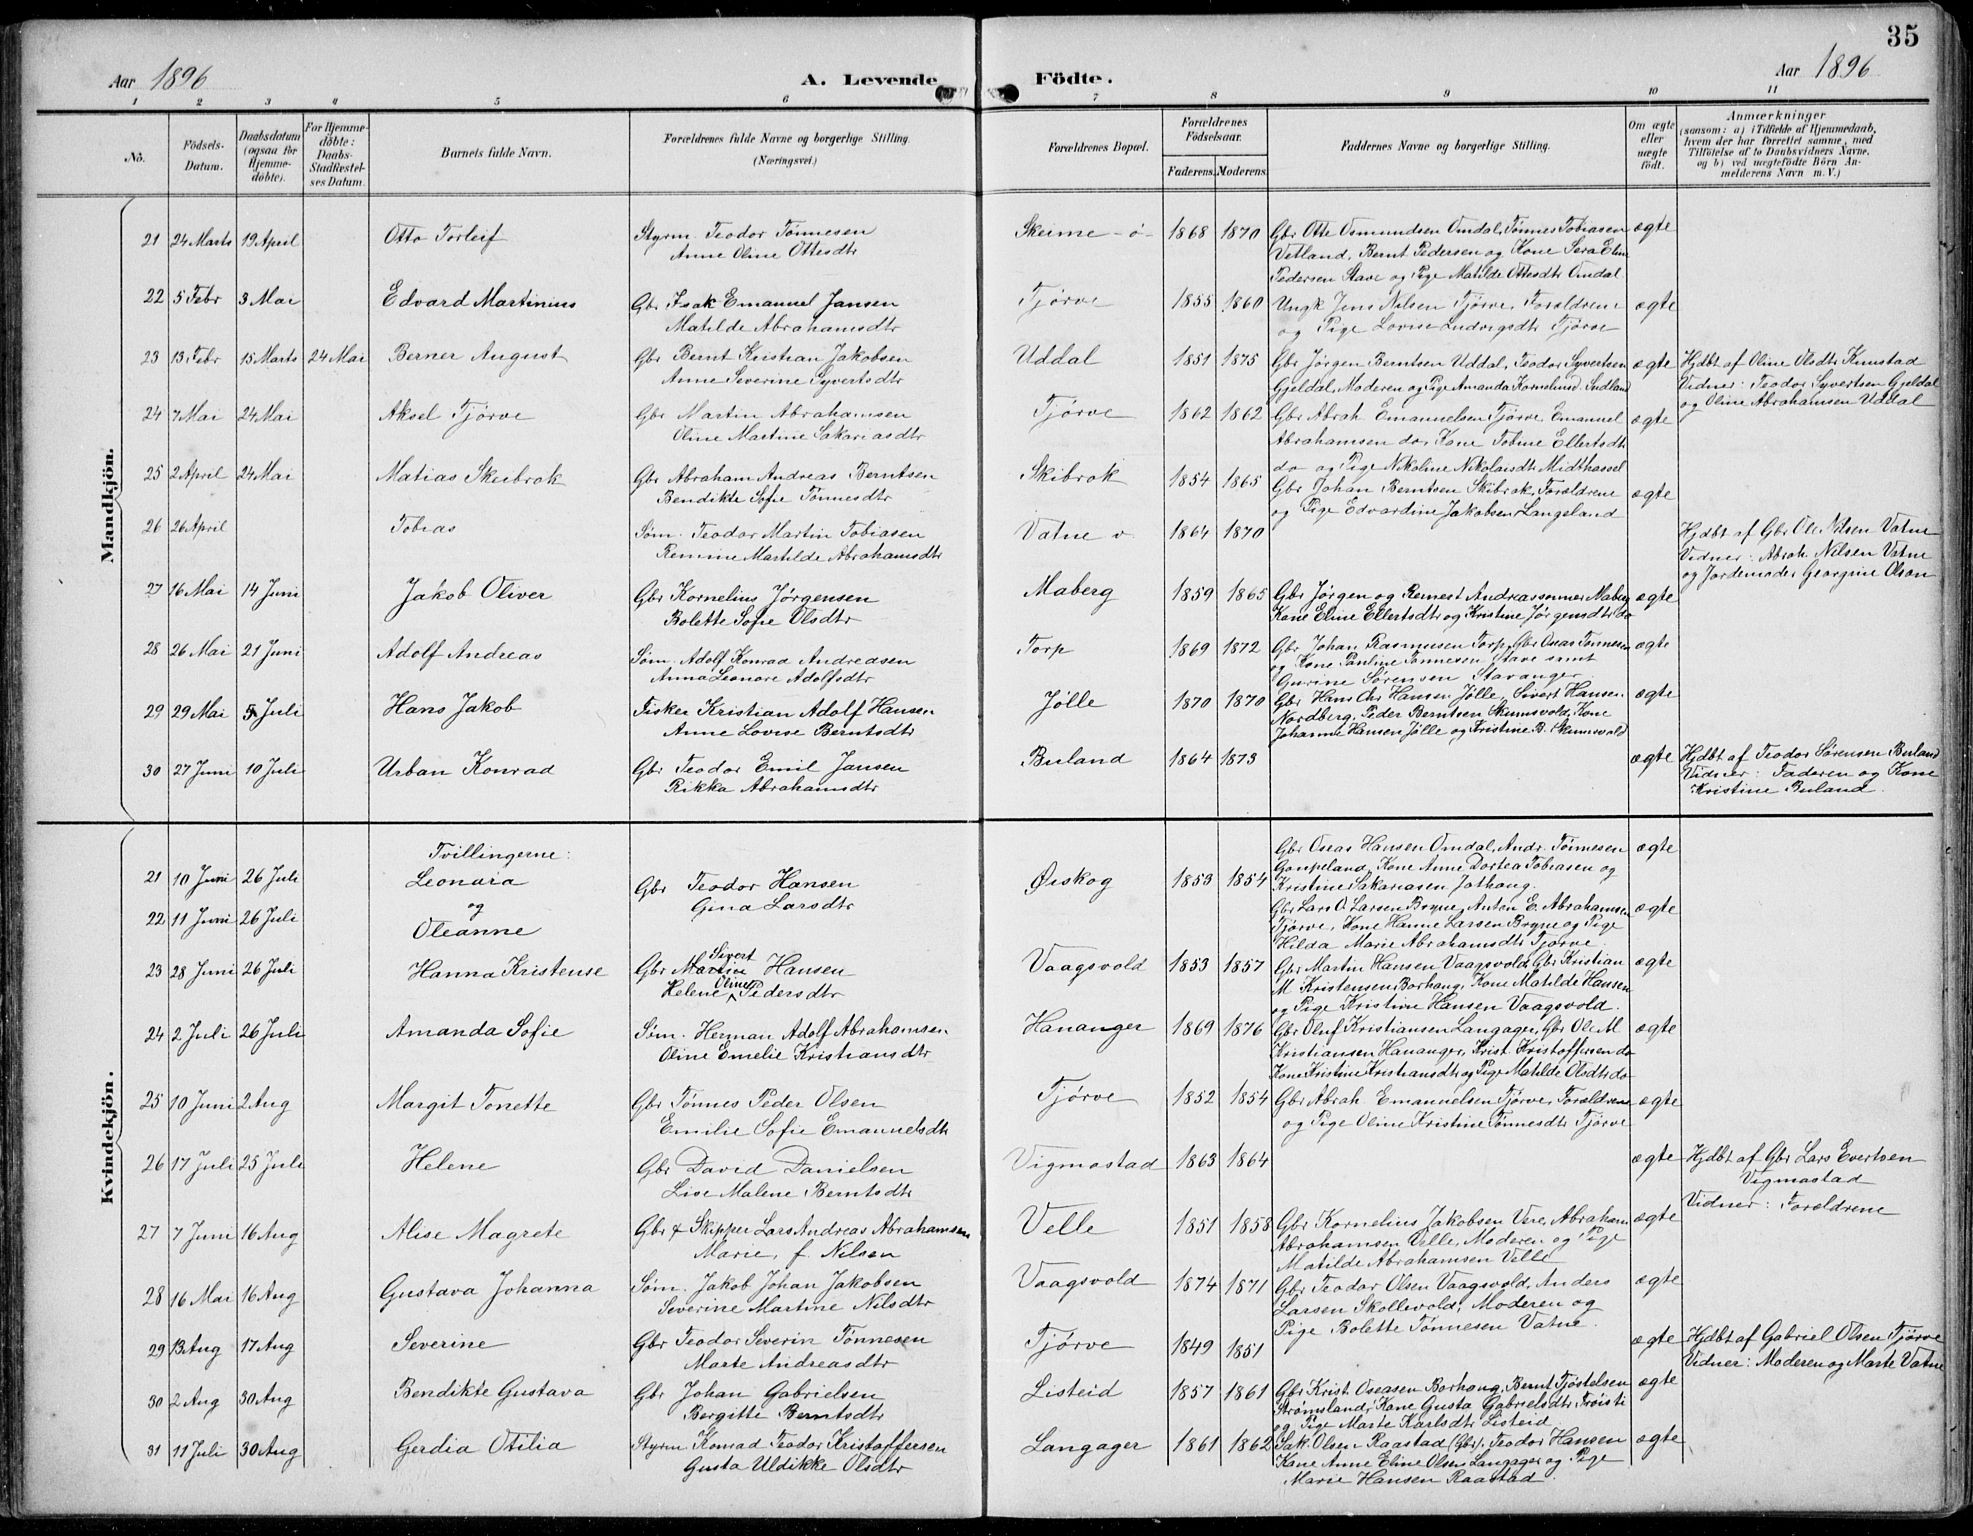 35
Aar 1896
A. Levende
Födte.
Aar 1896
1 2 3 4 5 6 7 8 9 10 11
No.
Födsels-Datum.
Daabsdatum (ogsaa for Hjemme-döbte).
For Hjemme-döbte: Daabs-Stadfæstel-ses Datum.
Barnets fulde Navn.
Forældrenes fulde Navne og borgerlige Stilling. (Næringsvei.)
Forældrenes Bopæl.
Forældrenes Födselsaar.
Faderens. Moderens.
Faddernes Navne og borgerlige Stilling.
Om ægte eller uægte födt.
Anmærkninger
(saasom: a) i Tilfælde af Hjemmedaab,
hvem der har forrettet samme, med
Tilföielse af to Daabsvidners Navne,
og b) ved uægtefödte Börn An-
melderens Navn m. V.)
Mandkjön.
21 24 Marts 19 April Otto Torleif Styrm. Teodor Tønnesen Skeime - ø - 1868 1870 Gbr Otte Osmundsen Omdal, Tønnes Tobiasen ægte
Anne Oline Ottesdtr Vetland, Bernt Pedersen og Kone Sera Elene
Pedersen Stave og Pige Matilde Ottesdtr Omdal
22 5 Febr 3 Mai Edvard Martinius Gbr Isak Emanuel Jansen Tjørve 1855 1860 Ungk Jens Nilsen Tjørve, Forældrene ægte
Matilde Abrahamsdtr og Pige Lovise Ludvigsdtr Tjørve
23 13 Febr 15 Marts 24 Mai Berner August Gbr Bernt Kristian Jakobsen Uddal 1851 1875 Gbr Jørgen Berntsen Uddal, Teodor Syvertsen ægte Hjdbt af Oline Olsdtr Kunstad
Anne Severine Syvertsdtr Gjeldal, Moderen og Pige Amanda Korneliusd. Indland Vidner: Teodor Syvertsen Gjeldal
og Oline Abrahamsen Uddal
24 7 Mai 24 Mai Aksel Tjørve Gbr Martin Abrahamsen Tjørve 1862 1862 Gbr Abrah Emanuelsen Tjørve, Emanuel ægte
Oline Martine Sakariasdtr Abrahamsen do, Kone Tobine Ellertsdtr
do og Pige Nikoline Nikolaisdtr Midthassel
25 2 April 24 Mai Matias Skeibrok Gbr Abraham Andreas Berntsen Skibrok 1854 1865 Gbr Johan Berntsen Skibrok, Forældrene ægte
Bendikte Sofie Tønnesdtr og Pige Edvardine Jakobsen Langeland
26 26 April Tobias Søm. Teodor Martin Tobiasen Vatne v. 1864 1870 Hjdbt af Gbr Ole Nilsen Vatne
Remine Martilde Abrahamsdtr Vidner: Abrah. Nilsen Vatne
og Jordemoder Georgine Olsen
27 16 Mai 14 Juni Jakob Oliver Gbr Kornelius Jørgensen Maberg 1859 1865 Gbr Jørgen og Remest Andreassenner Maberg ægte
Bolette Sofie Olsdtr Kone Eline Ellertsdtr og Kristine Jørgensdtr do
28 26 Mai 21 Juni Adolf Andreas Søm. Adolf Konrad Andreasen Torp 1869 1872 Gbr Johan Rasmusen Torp, Gbr Oseas Tønnesen ægte
Anna Leonore Adolfsdtr og Kone Pauline Tønnesen Stave samt
Gurine Sørensen Stavanger
29 29 Mai 5 Juli Hans Jakob Fisker Kristian Adolf Hansen Jølle 1870 1870 Gbr Hans Chr Hansen Jølle, Sivert Hansen ægte
Anne Lovise Berntsdtr Nordberg, Peder Berntsen Skeimsvold, Kone
Johanne Hansen Jølle og Kristine B. Skeimsvold
30 27 Juni 10 Juli Urban Konrad Gbr Teodor Emil Jansen Buland 1864 1873 ægte Hjdbt af Teodor Sørensen Buland
Rikka Abrahamsdtr Vidner: Faderen og Kone
Kristine Buland.
Kvindekjön.
Tvillingerne: Gbr Oseas Hansen Omdal, Andr. Tønnesen ægte
21 10 Juni 26 Juli Leonara Gbr Teodor Hansen Øiskog 1853 1854 Gaupeland, Kone Anne Dortea Tobiasen og
og Gina Larsdtr Kristine Sakariasen Jathaug.
22 11 Juni 26 Juli Oleanne Gbr Lars O. Larsen Bryne, Anton E. Abrahamsen ægte
Tjørve, Kone Hanne Larsen Bryne og Pige
Hilda Marie Abrahamsdtr Tjørve.
23 28 Juni 26 Juli Hanna Kristense Gbr Martin Sivert Hansen Vaagsvold 1853 1857 Gbr Martin Hansen Vaagsvold, Gbr Kristian ægte
Helene Oline Pedersdtr M. Kristensen Borhaug, Kone Matilde Hansen
og Pige Kristine Hansen Vaagsvold.
24 2 Juli 26 Juli Amanda Sofie Søm. Herman Adolf Abrahamsen Hananger 1869 1876 Gbr Oluf Kristiansen Langager, Gbr Ole M. ægte
Oline Emelie Kristiansdtr Kristiansen Hananger, Krist. Kristoffersen do
Kone Kristine Kristiansdtr og Pige Matilde Olsdtr do
25 10 Juni 2 Aug Margit Tonette Gbr Tønnes Peder Olsen Tjørve 1852 1854 Gbr Abrah Emanuelsen Tjørve, Forældrene ægte
Emilie Sofie Emanuelsdtr og Pige Oline Kristine Tønnesdtr Tjørve
26 17 Juli 25 Juli Helene Gbr David Danielsen Vigmostad 1863 1864 ægte Hjdbt af Gbr Lars Evertsen
Lise Malene Berntsdtr Vigmostad
Vidner: Forældrene
27 7 Juni 16 Aug Alise Magrete Gbr & Skipper Lars Andreas Abrahamsen Velle 1851 1858 Gbr Kornelius Jakobsen Vere, Abraham ægte
Marie, f. Nilsen Abrahamsen Velle, Moderen og Pige
Matilde Abrahamsen Velle
28 16 Mai 16 Aug Gustava Johanna Søm. Jakob Johan Jakobsen Vaagsvold 1874 1871 Gbr Teodor Olsen Vaagsvold, Anders ægte
Severine Martine Nilsdtr Larsen Skollevold, Moderen og
Pige Bolette Tønnesen Vatne.
29 13 Aug 17 Aug Severine Gbr Teodor Severin Tønnesen Tjørve 1849 1851 ægte Hjdbt af Gabriel Olsen Tjørve
Marte Andreasdtr Vidner: Moderen og Marte Vatne
30 2 Aug 30 Aug Bendikte Gustava Gbr Johan Gabrielsen Listeid 1857 1861 Gbr Krist. Oseasen Borhaug, Bernt Tjøstelsen ægte
Bergitte Berntsdtr Strømsland, Kone Gusta Gabrielsdtr Trøisti
og Pige Marte Karlsdtr Listeid
31 11 Juli 30 Aug Gerdia Otilia Styrm Konrad Teodor Kristoffersen Langager 1861 1862 Sak. Olsen Raastad (Gbr). Teodor Hansen ægte
Gusta Uldikke Olsdtr Kone Anne Eline Olsen Langager og Pige
Marie Hansen Raastad.